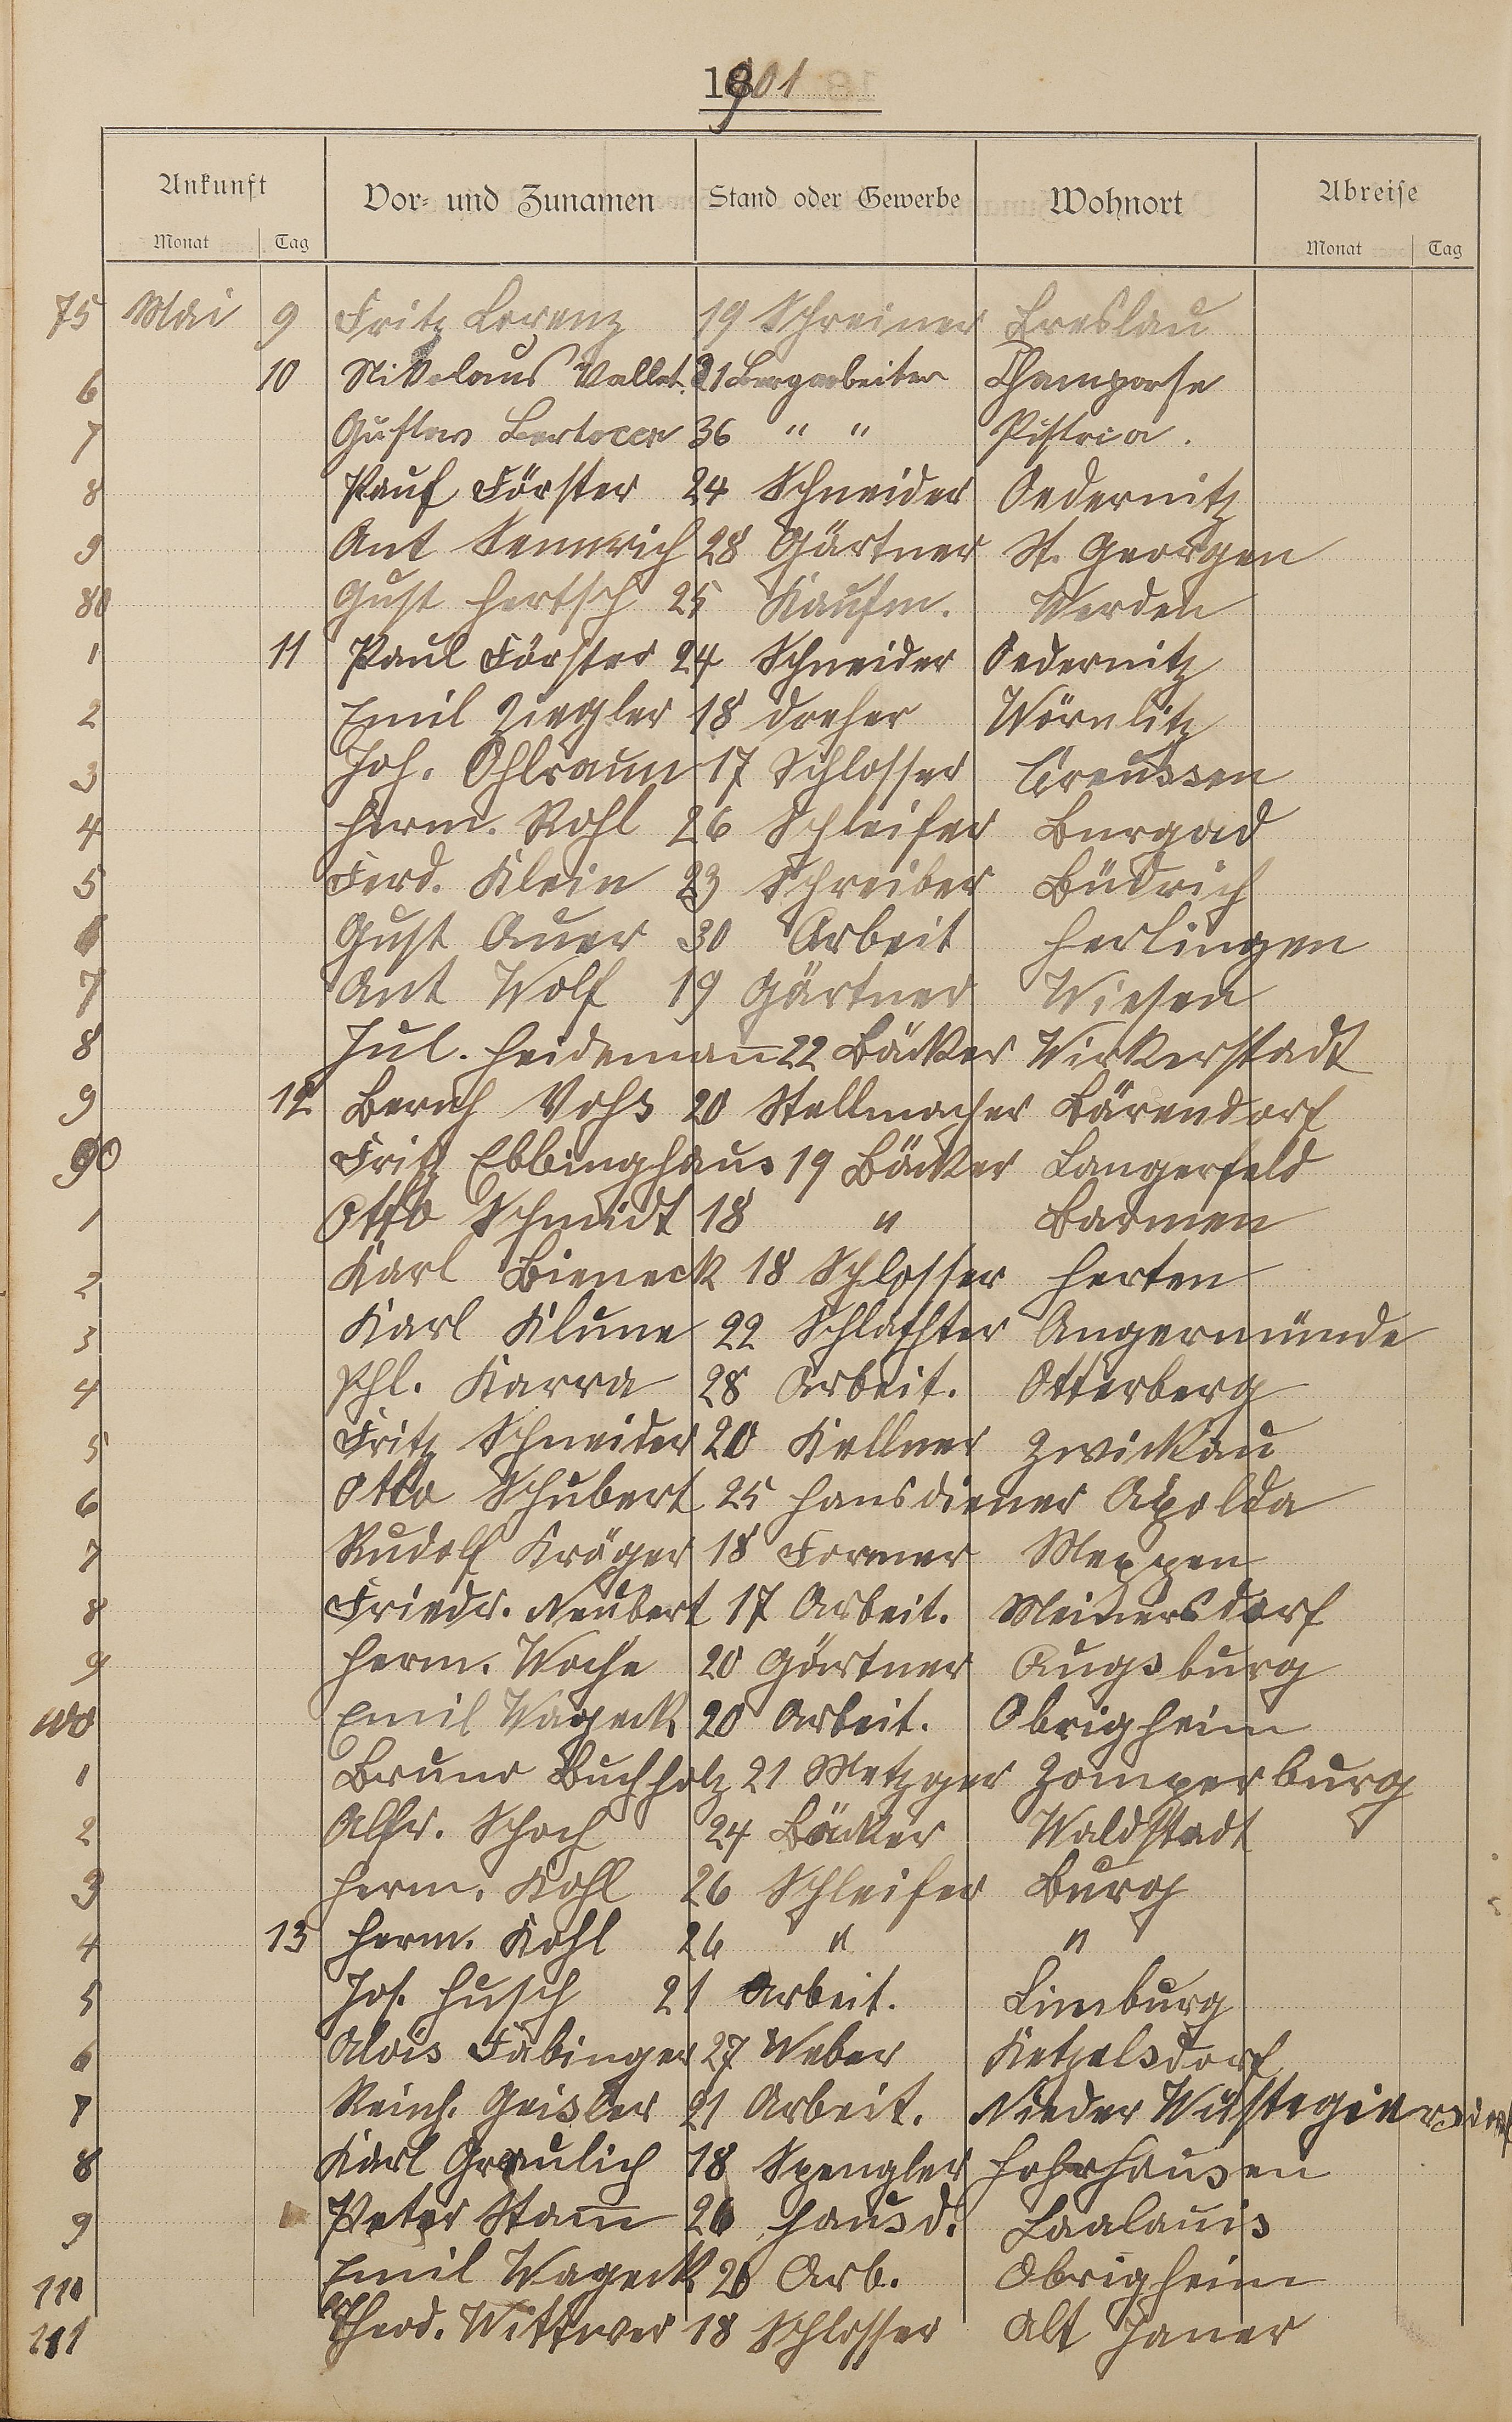 1901
Ankunft Vor- und Zunamen Stand oder Gewerbe Wohnort Abreise
Monat Tag Monat Tag
75 Mai 9 Fritz Lorenz 19 Schreiner Breslau
6 10 Nikolaus Vallet. 21 Bergarbeiter Champorse
7 Gustav Bertocer 36 " " Pistria.
8 Pauf Förster 24 Schneider Oedernitz
9 Ant Sennrich 28 Gärtner St. Georgen
80 Gust Hertsch 25 Kaufm. Werden
1 11 Paul Förster 24 Schneider Oedernitz
2 Emil Ziegler 18 dreher Wörmlitz
3 Joh. Ohlraun 17 Schlosser Creussen
4 Herm. Kohl 26 Schleifer Burgad
5 Ferd. Klein 23 Schreiber Büdrich
6 Gust Auer 30 Arbeit Herlingen
7 Ant Wolf 19 Gärtner Wiesen
8 Jul. Heidemann 22 Bäcker Wickerstadt
9 12 Bernh Vohs 20 Stellmacher Bärendorf
90 Fritz Ebbinghaus 19 Bäcker Langerfeld
1 Otto Schmidt 18 " Barmen
2 Karl Bieneck 18 Schlosser Herten
3 Karl Klune 22 Schlachter Angermünde
4 Phl. Karra 28 Arbeit. Otterberg
5 Fritz Schneider 20 Kellner Zwickau
6 Otto Schubert 25 Hausdiener Apolda
7 Rudolf Kröger 18 Former Meppen
8 Friedr. Neubert 17 Arbeit. Meinersdorf
9 Herm. Woche 20 Gärtner Augsburg
100 Emil Wageck 20 Arbeit. Obrigheim
1 Bruno Buchholz 21 Metzger Zomperburg
2 Alfr. Schoch 24 Bäcker Waldstadt
3 Herm. Kohl 26 Schleifer Burg
4 13 Herm. Kohl 26 " "
5 Jos. Husch 21 Arbeit. Limburg
6 Alois Fabinger 27 Weber Ketzelsdorf
7 Reinh. Geisler 21 Arbeit. Nieder Wüstegiersdorf
8 Karl Graulich 18 Spengler Hohrhausen
9 Peter Stamm 26 Hausd. Saalauis
110 Emil Wageck 20 Arb. Obrigheim
111 Theod. Wittwer 18 Schlosser Alt Janer